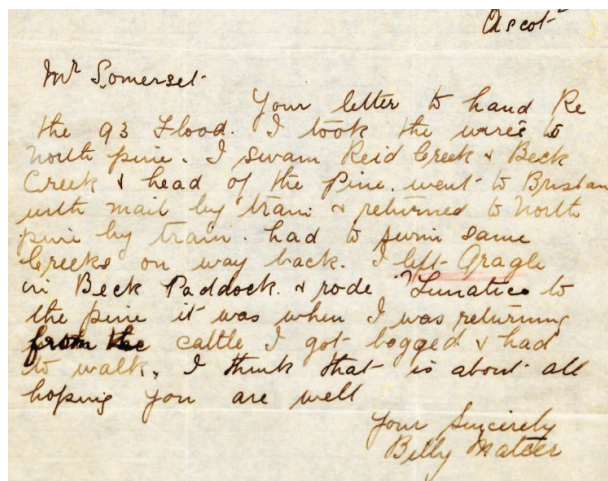 Ascot
Mr Somerset
Your letter to hand Re
the 93 Flood. I took the wires to
North pine. I swam Reid Creek & Beck
Creek & head of the Pine. went to Brisban
with mail by train & returned to North
pine by train. had to swim same
Creeks on way back. I left Gragle
in Beck Paddock. & rode "Lunatic" to
the pine it was when I was returning
from the cattle I got bogged & had
to walk. I think that is about all
hoping you are well
Your Sincerely
Billy Mateer